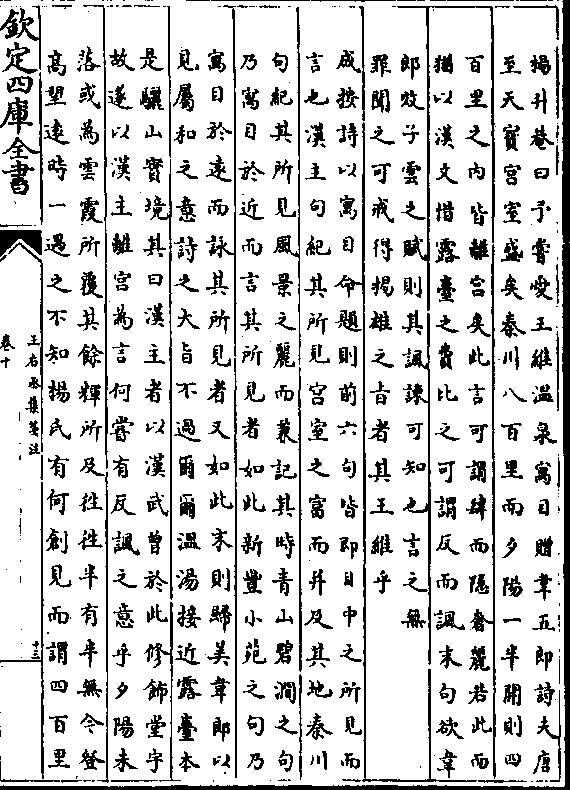 楊升菴曰予嘗愛王維溫泉寓目贈韋五郎詩夫唐
至天寶宮室盛矣秦川八百里而夕陽一半開則四
百里之内皆離宮矣此言可謂肆而隱奢麗若此而
猶以漢文惜露臺之費比之可謂反而諷末句欲韋
郎效子雲之賦則其諷諫可知也言之無
罪聞之可戒得揚雄之旨者其王維乎
成按詩以寓目命題則前六句皆即目中之所見而
言也漢主句紀其所見宮室之富而并及其地秦川
句紀其所見風景之麗而兼記其時青山碧澗之句
乃寓目於近而言其所見者如此新豐小苑之句乃
寓目於遠而詠其所見者又如此末則歸美韋郎以
見屬和之意詩之大旨不過爾爾溫湯接近露臺本
是驪山實境其曰漢主者以漢武曾於此修飾堂宇
故遂以漢主離宮為言何嘗有反諷之意乎夕陽未
落或為雲霞所覆其餘輝所及徃徃半有半無今登
髙望遠時一遇之不知楊氏有何創見而謂四百里
欽定四庫全書
王右丞集箋注
卷十
十三